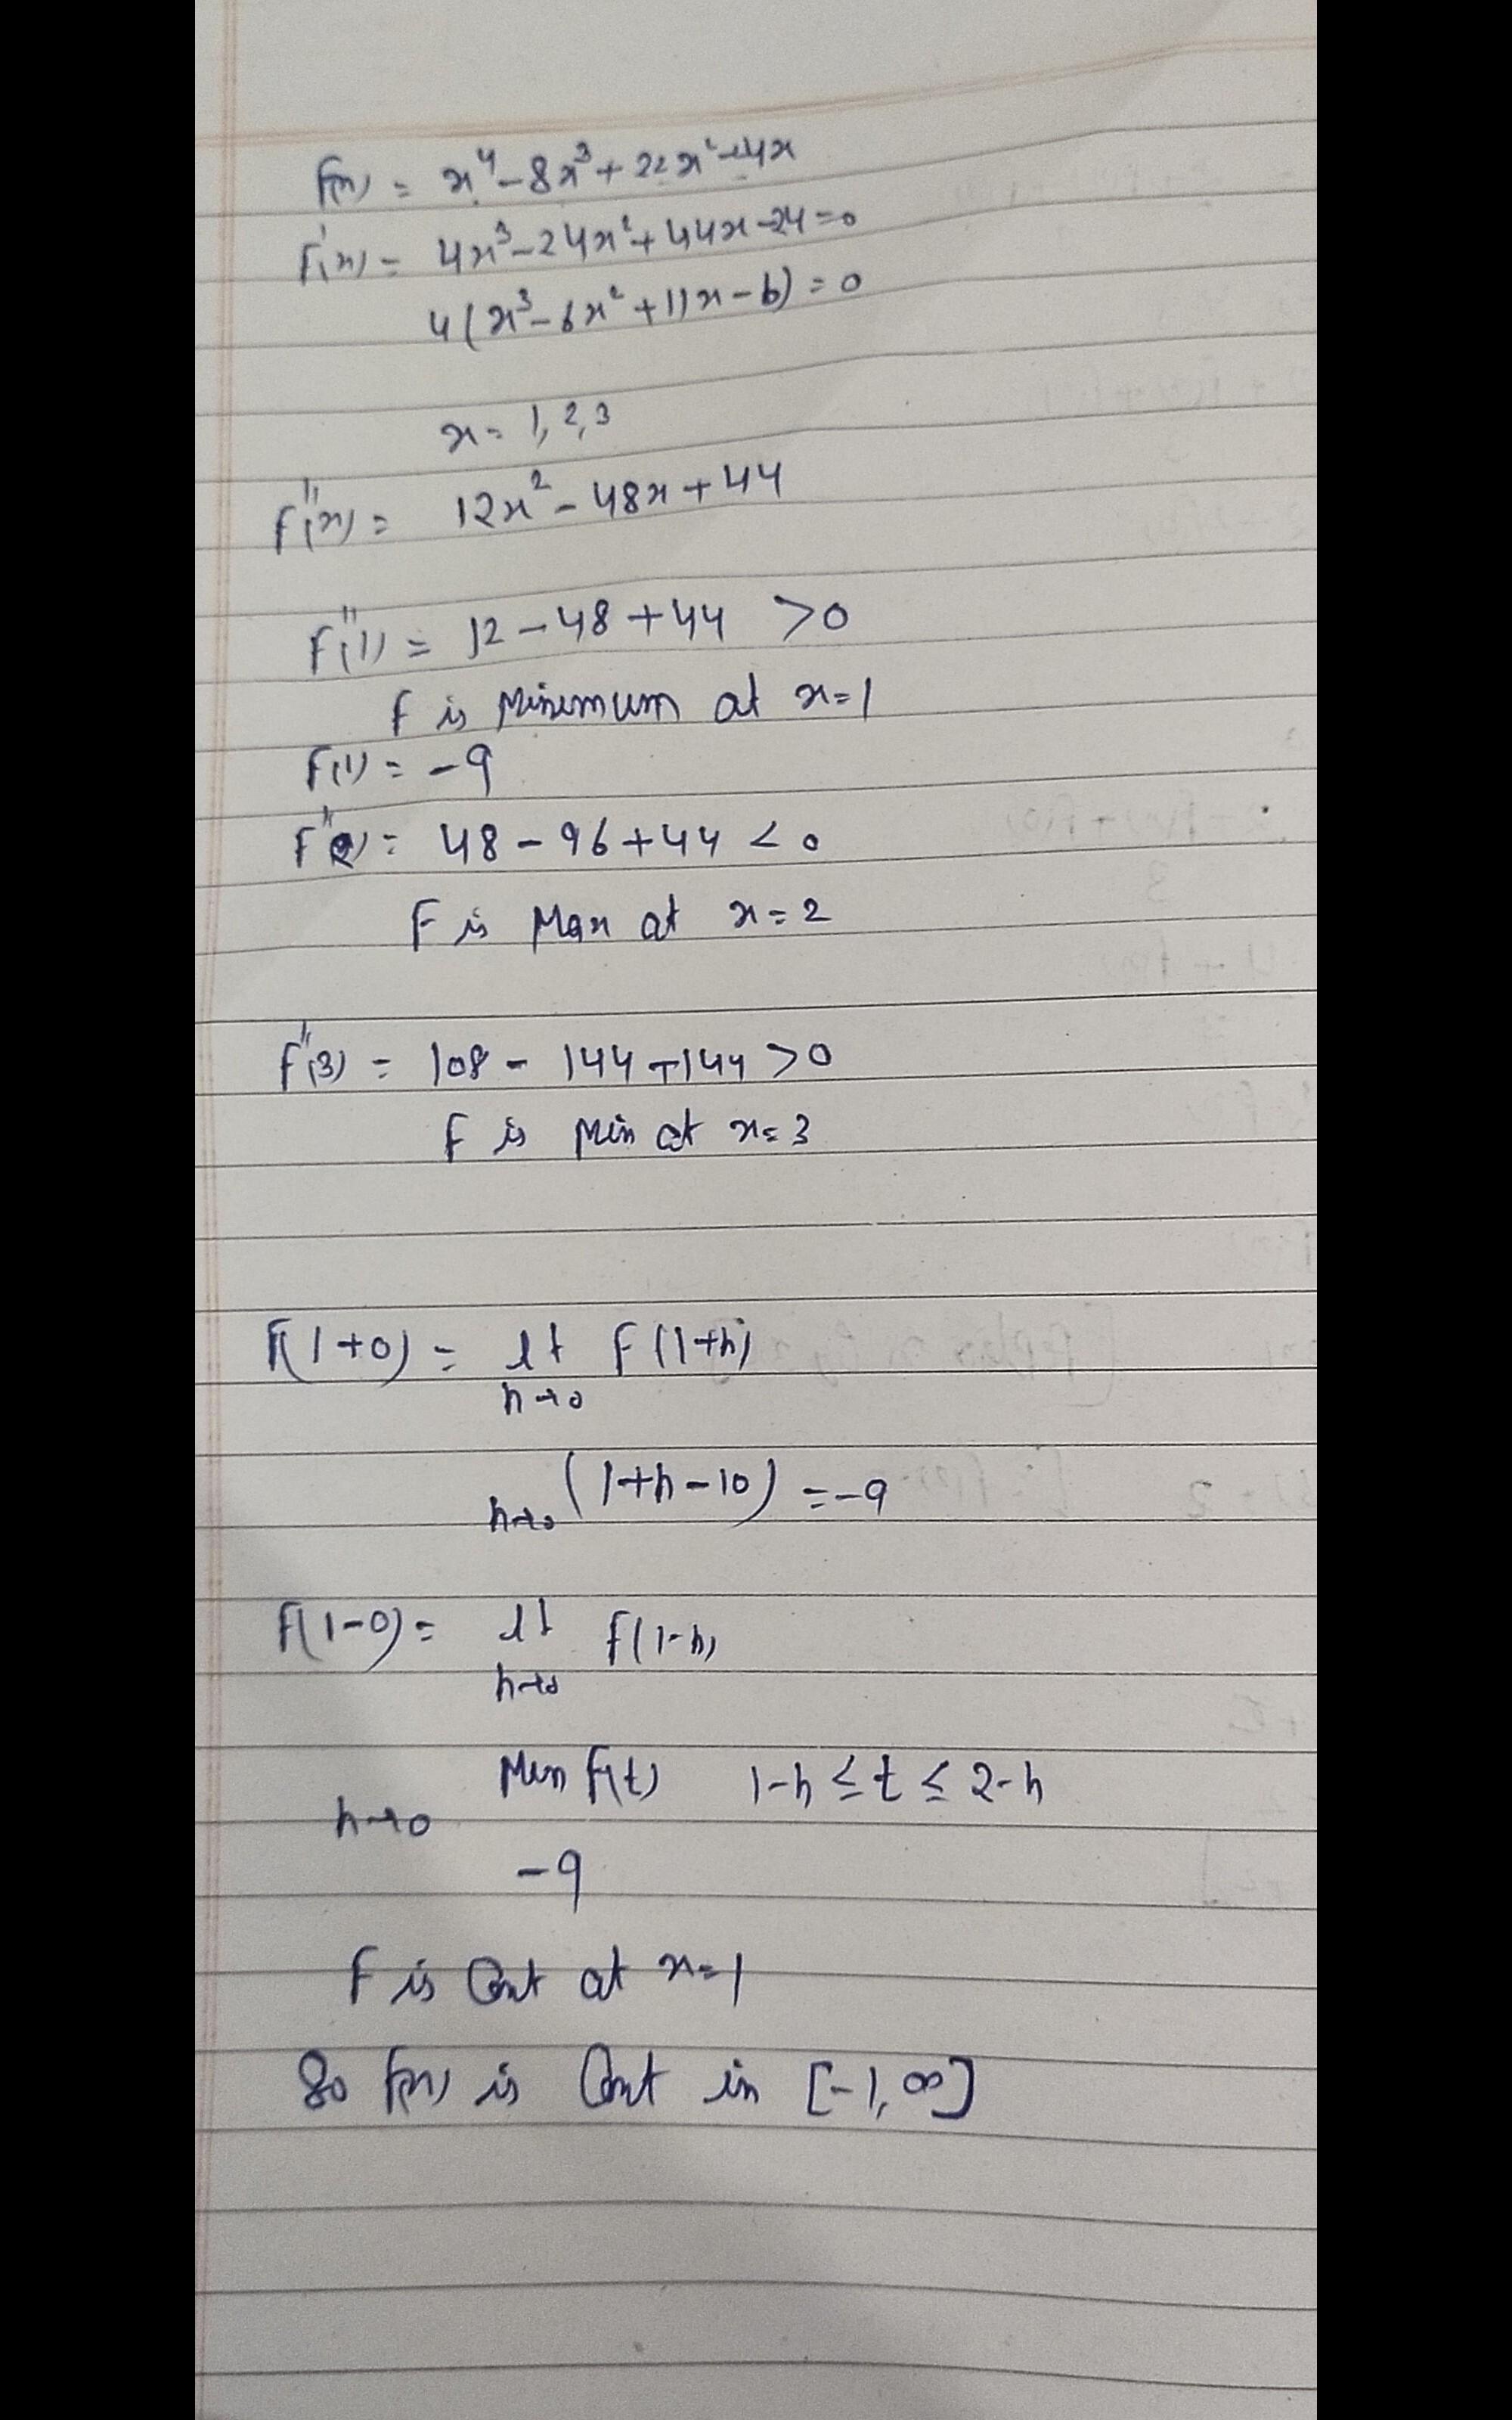 f(x) = x⁴-8x³+22x²-24x
f'(x) = 4x³-24x²+44x-24=0
4(x³-6x²+11x-6)=0
x= 1,2,3
f''(x) = 12x²-48x+44
f''(1) = 12-48+44 >0
f is Minimum at x=1
f(1) = -9
f''(2) = 48-96+44 <0
F is Max at x=2
f''(3) = 108-144+144 >0
f is Min at x=3
f(1+0) = lt f(1+h)
h→0
h→0 (1+h-10) =-9
f(1-0) = lt f(1-h)
h→0
Min f(t) 1-h ≤ t ≤ 2-h
h→0
-9
f is Cont at x=1
So f(x) is Cont in [-1,∞]